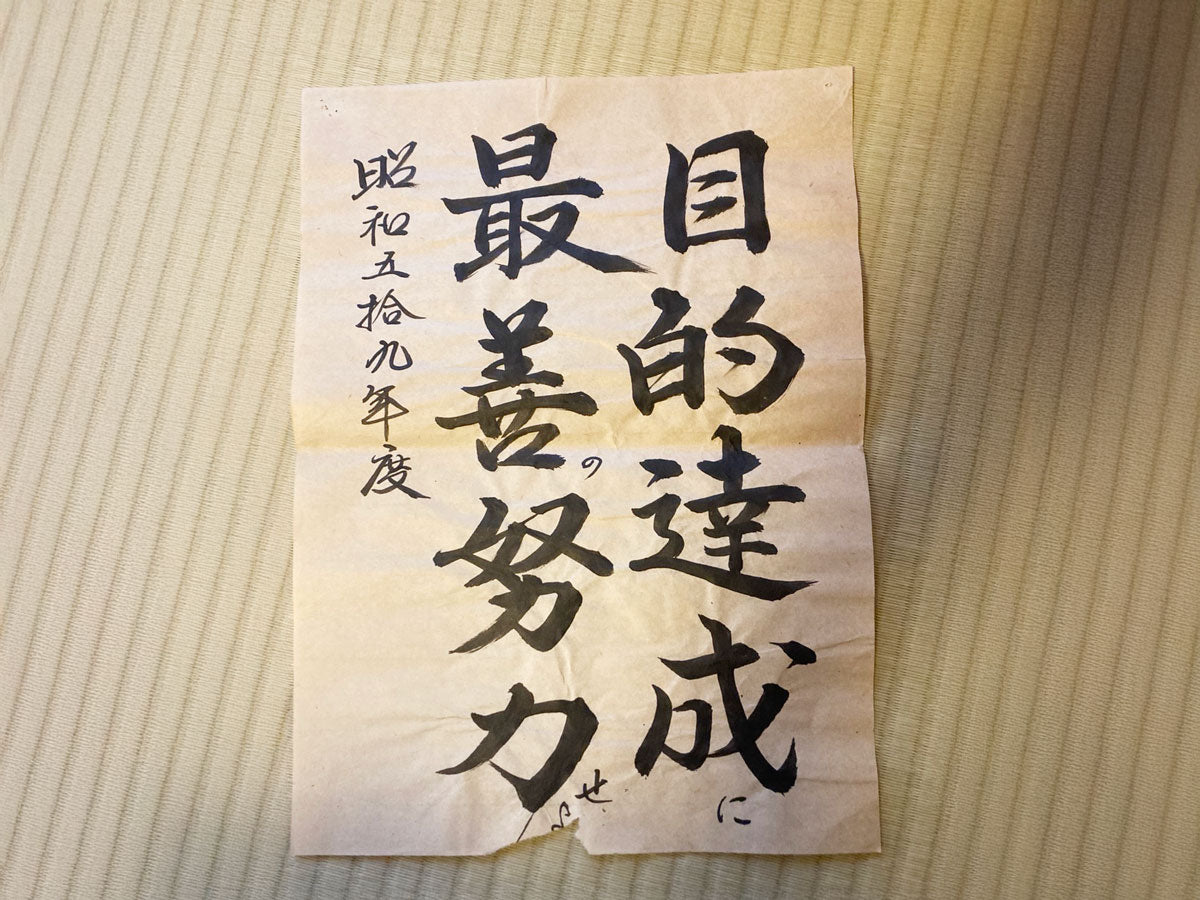 目的達成に
最善の努力せよ
昭和五拾九年度